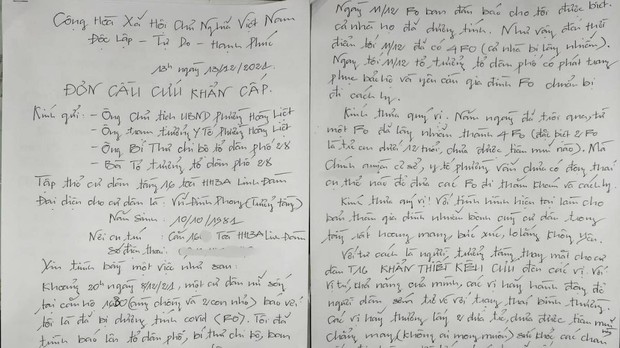 Cộng Hòa Xã Hội Chủ Nghĩa Việt Nam
Độc Lập - Tự Do - Hạnh Phúc
13h ngày 13/12/2021.
ĐƠN CẦU CỨU KHẨN CẤP.
Kính gửi: - Ông Chủ tịch UBND Phường Hoàng Liệt
- Ông trạm trưởng Y Tế Phường Hoàng Liệt
- Ông Bí Thư chi bộ tổ dân phố 28
- Bà Tổ trưởng tổ dân phố 28
Tập thể cư dân tầng 16 toà HH3A Linh Đàm
Đại diện cho cư dân là: Vũ Đình Phong (Trưởng tầng)
Năm sinh: 10/10/1981
Nơi cư trú: Căn 16 Toà HH3A Linh Đàm
Số điện thoại:
Xin trình bày một việc như sau:
Khoảng 20h ngày 8/12/21, một cư dân nữ sống
tại căn hộ (cùng chồng và 2 con nhỏ) báo với
tôi là đã bị dương tính covid (F0). Tôi đã
trình báo lên tổ dân phố, bí thư chi bộ, ban
Ngày 11/12 F0 ban đầu báo cho tôi được biết
cả nhà họ đã dương tính. Như vậy đến thời
điểm tối 11/12 đã có 4 F0 (cả nhà bị lây nhiễm).
Ngay tối 11/12 tổ trưởng tổ dân phố có phát trang
phục bảo hộ và yêu cầu gia đình F0 chuẩn bị
đi cách ly.
Kính thưa quý vị. Năm ngày đã trôi qua, từ
một F0 đã lây nhiễm thành 4 F0 (đặc biệt 2 F0
là trẻ em dưới 12 tuổi, chưa được tiêm mũi nào). Mà
chính quyền cơ sở, y tế phường vẫn chưa có động thái
cụ thể nào để đưa các F0 đi thăm khám và cách ly.
Kính thưa quý vị! Với tình hình hiện tại làm cho
bản thân gia đình nhiễm bệnh cùng cư dân trong
tầng rất hoang mang bức xúc, lo lắng không yên.
Với tư cách là người trưởng tầng thay mặt cho cư
dân T16 KHẨN THIẾT KÊU CỨU đến các vị. Với
vị trí, khả năng của mình, các vị hãy hành động để
người dân sớm trở về với trạng thái bình thường.
Các vị hãy thương lấy 2 đứa trẻ chưa được tiêm mũi
Chẳng may (không ai mong muốn) sức khỏe các cháu